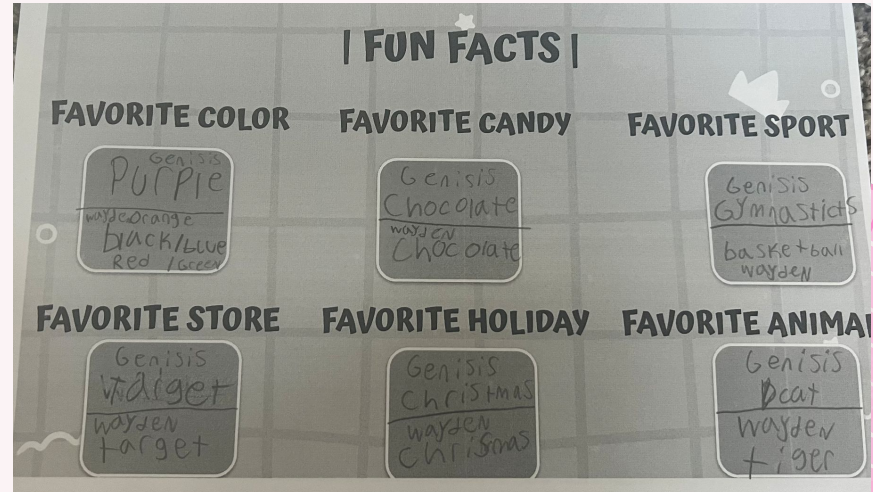 | FUN FACTS |
FAVORITE COLOR
Genisis
Purple
wayden orange
black/blue
Red /Green
FAVORITE CANDY
Genisis
Chocolate
wayden
Chocolate
FAVORITE SPORT
Genisis
Gymnasticts
basketball
wayden
FAVORITE STORE
Genisis
Target
wayden
target
FAVORITE HOLIDAY
Genisis
christmas
wayden
chrismas
FAVORITE ANIMA
Genisis
cat
wayden
tiger